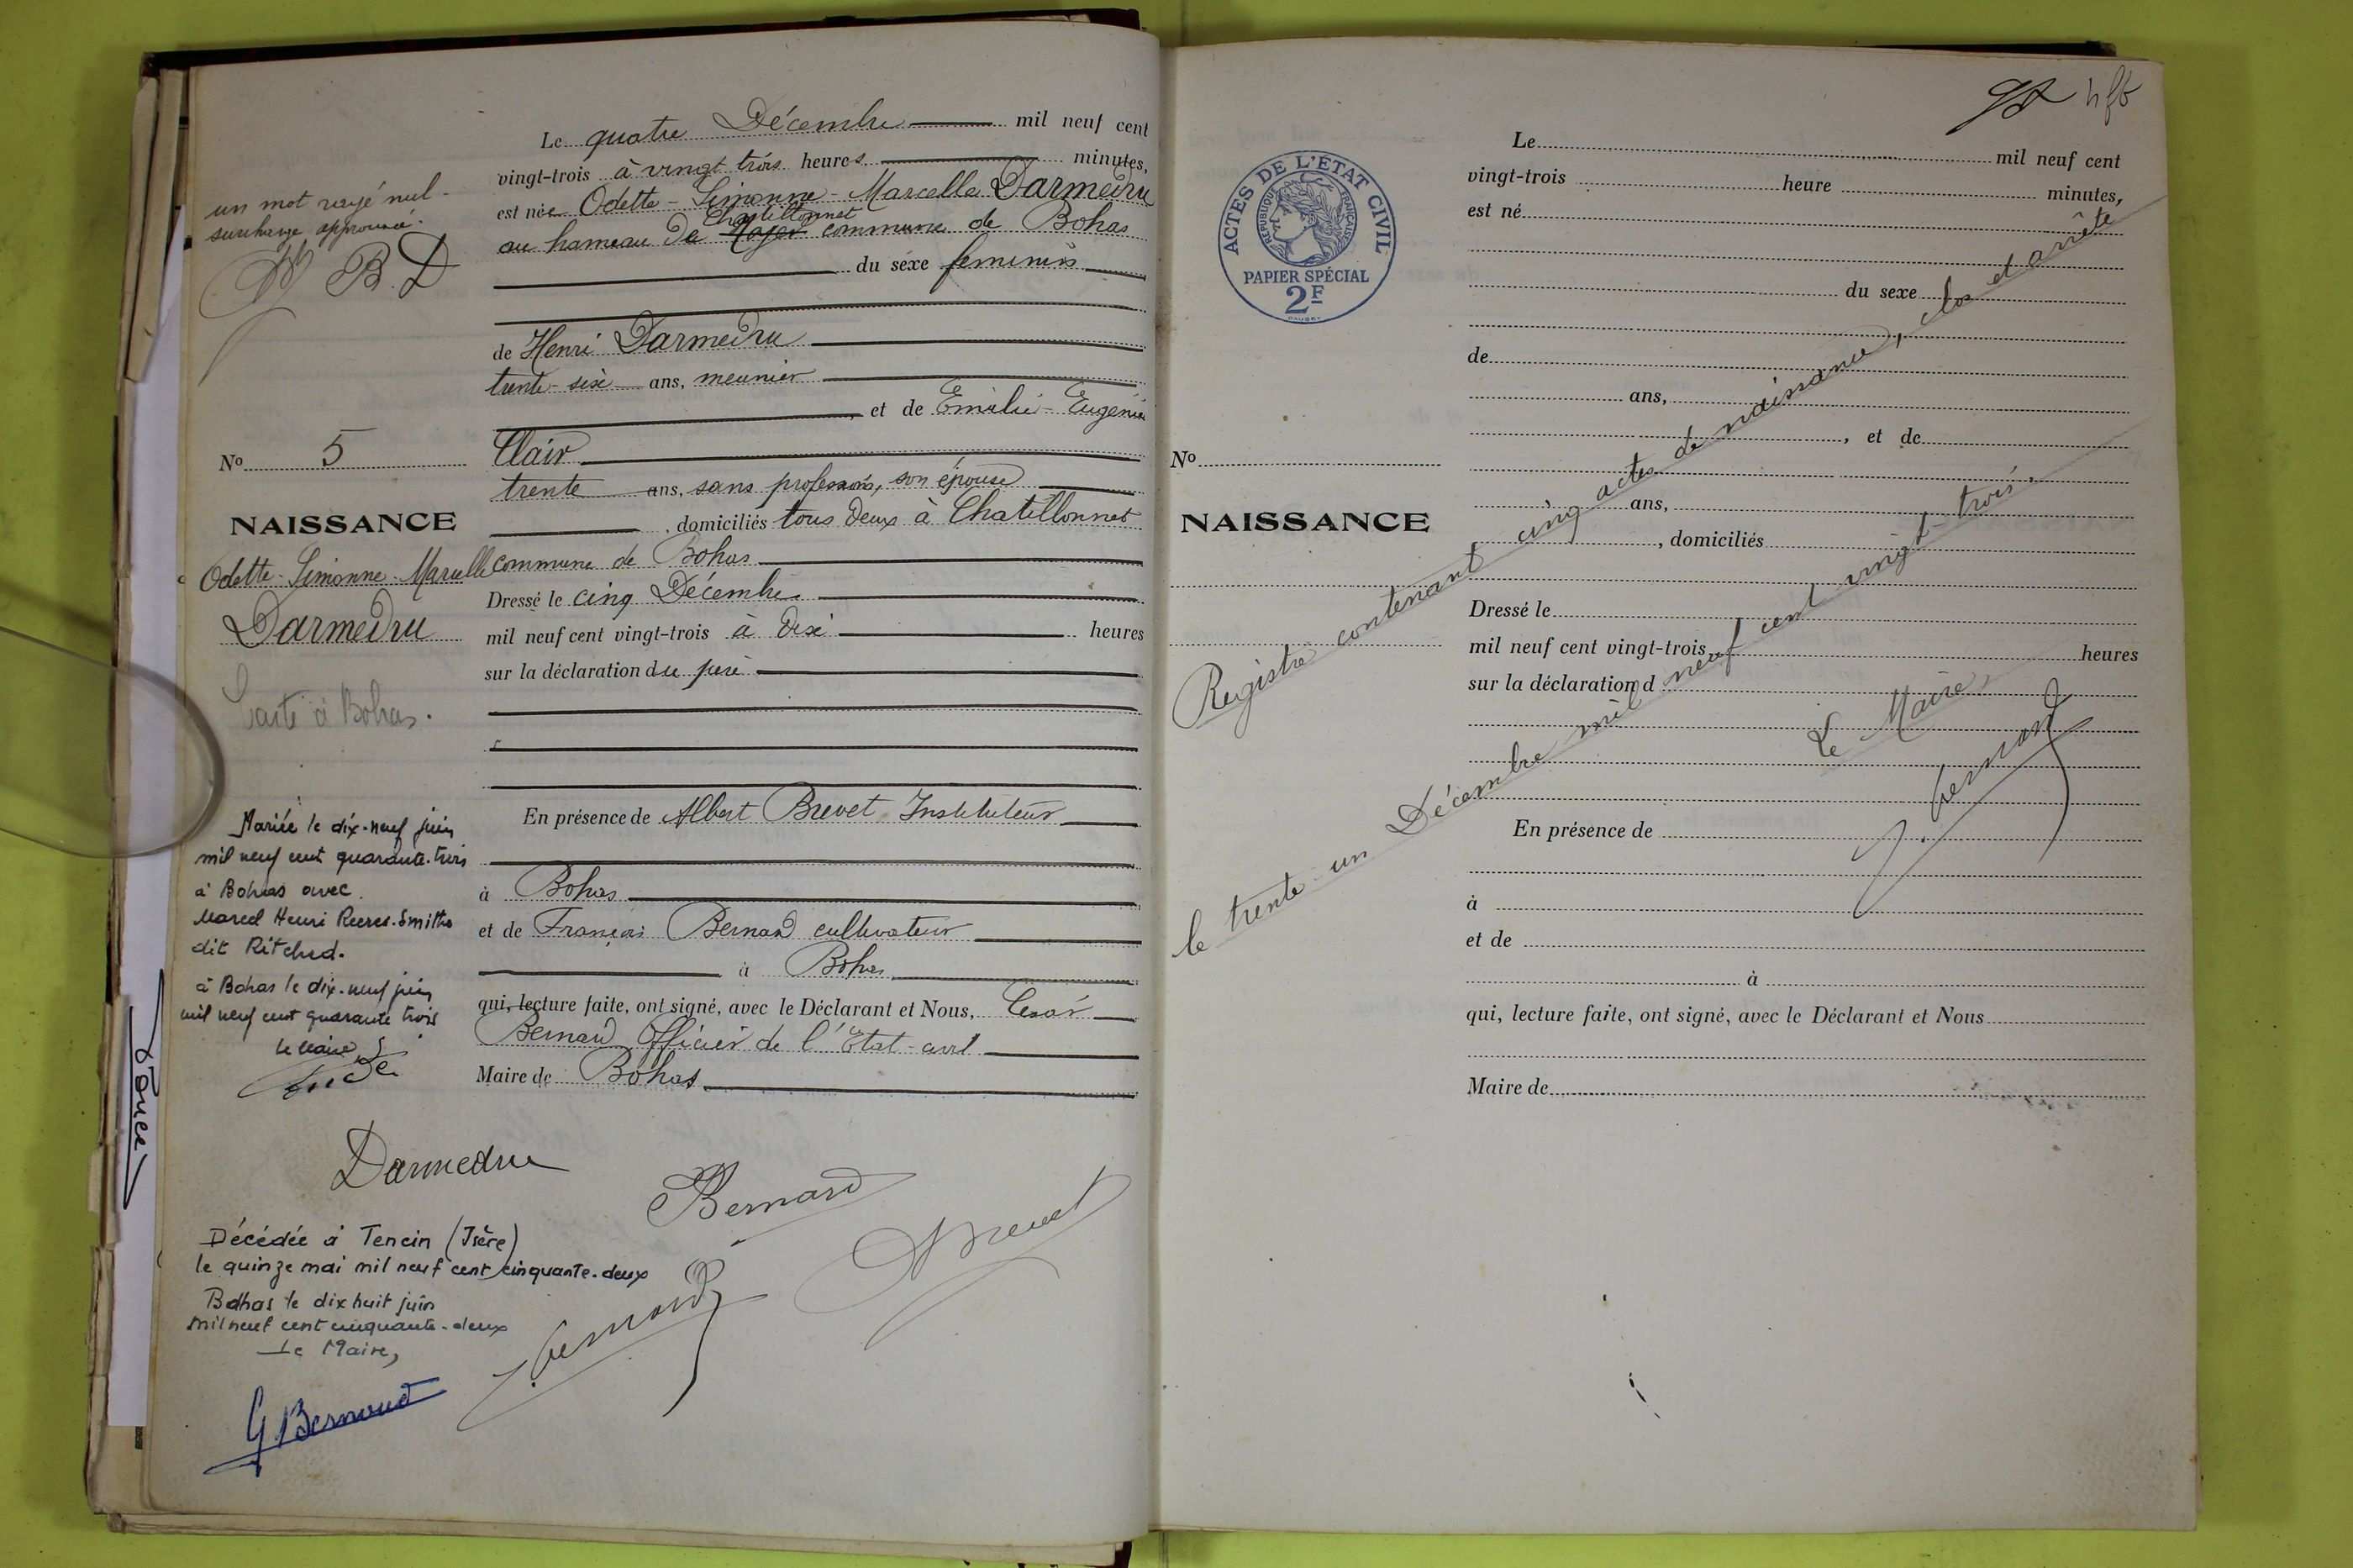 Le quatre Décembre mil neuf cent
vingt-trois à vingt trois heures minutes,
est née Odette-Simonne-Marcelle Darmedru
Chatillonnet
au hameau de commune de Bohas
du sexe feminin
de Henri Darmedru
trente-six ans, meunier
, et de Emilie-Eugénie
Clair
trente ans, sans profession, son épouse
, domiciliés tous deux à Chatillonnet
commune de Bohas
Dressé le cinq Décembre
mil neuf cent vingt-trois à dix heures
sur la déclaration du père
En présence de Albert Brevet Instituteur
à Bohas
et de François Bernard cultivateur
à Bohas
qui, lecture faite, ont signé, avec le Déclarant et Nous, César
Bernard Officier de l'Etat-civil
Maire de Bohas
un mot rayé nul-
surcharge approuvée.
B. D
No 5
NAISSANCE
Odette-Simonne-Marcelle
Darmedru
à Bohas.
Mariée le dix-neuf juin
mil neuf cent quarante-trois
à Bohas avec
Marcel Henri Reeres-Smiths
dit Ritchid.
à Bohas le dix-neuf juin
mil neuf cent quarante trois
le Maire
Darmedru
Bernard
Brevet
C. Bernard
Décédée à Tencin (Isère)
le quinze mai mil neuf cent cinquante-deux
Bohas le dix huit juin
mil neuf cent cinquante-deux
Le Maire,
G. Bernoud
ACTES DE L'ETAT CIVIL
REPUBLIQUE FRANÇAISE
PAPIER SPÉCIAL
2F
Le mil neuf cent
vingt-trois heure minutes,
est né
du sexe
de
ans,
, et de
No
ans,
NAISSANCE
, domiciliés
Dressé le
mil neuf cent vingt-trois heures
sur la déclaration d
En présence de
à
et de
à
qui, lecture faite, ont signé, avec le Déclarant et Nous
Maire de
Registre contenant cinq actes de naissance, clos et arrêté
le trente-un Décembre mil neuf cent vingt-trois.
Le Maire,
C. Bernard